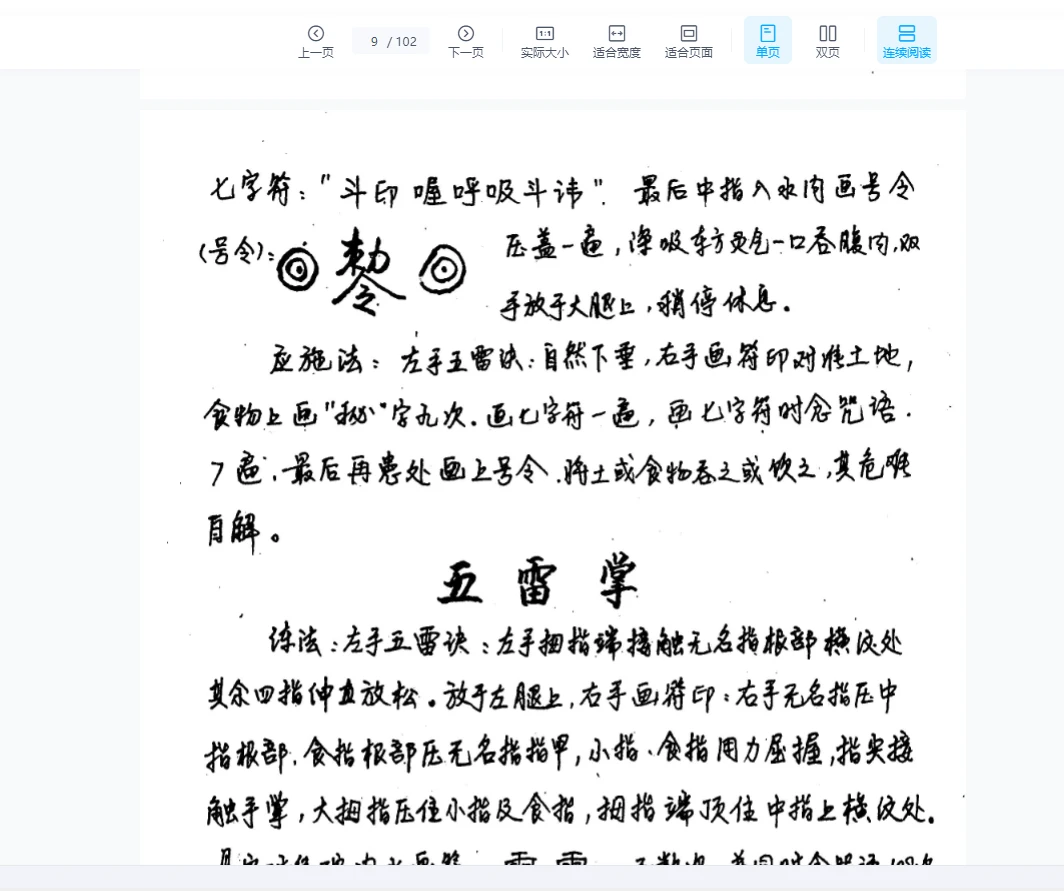 上一页 9 / 102 下一页 1:1 实际大小 适合宽度 适合页面 单页 双页 连续阅读
七字符："斗印喔呼吸斗讳". 最后中指入水内画号令
(号令): 勅令 压盖一遍，降吸东方灵气一口吞腹内,双
手放于大腿上，稍停休息。
应施法：左手五雷诀:自然下垂,右手画符印对准土地，
食物上画"秘"字九次.画七字符一遍，画七字符时念咒语.
7遍.最后再患处画上号令.将土或食物吞之或饮之,其危难
自解。
五雷掌
练法:左手五雷诀:左手拇指端接触无名指根部横纹处
其余四指伸直放松。放于左腿上,右手画符印:右手无名指压中
指根部.食指根部压无名指指甲,小指、食指用力屈握,指尖接
触手掌,大拇指压住小指及食指,拇指端顶住中指上横纹处.